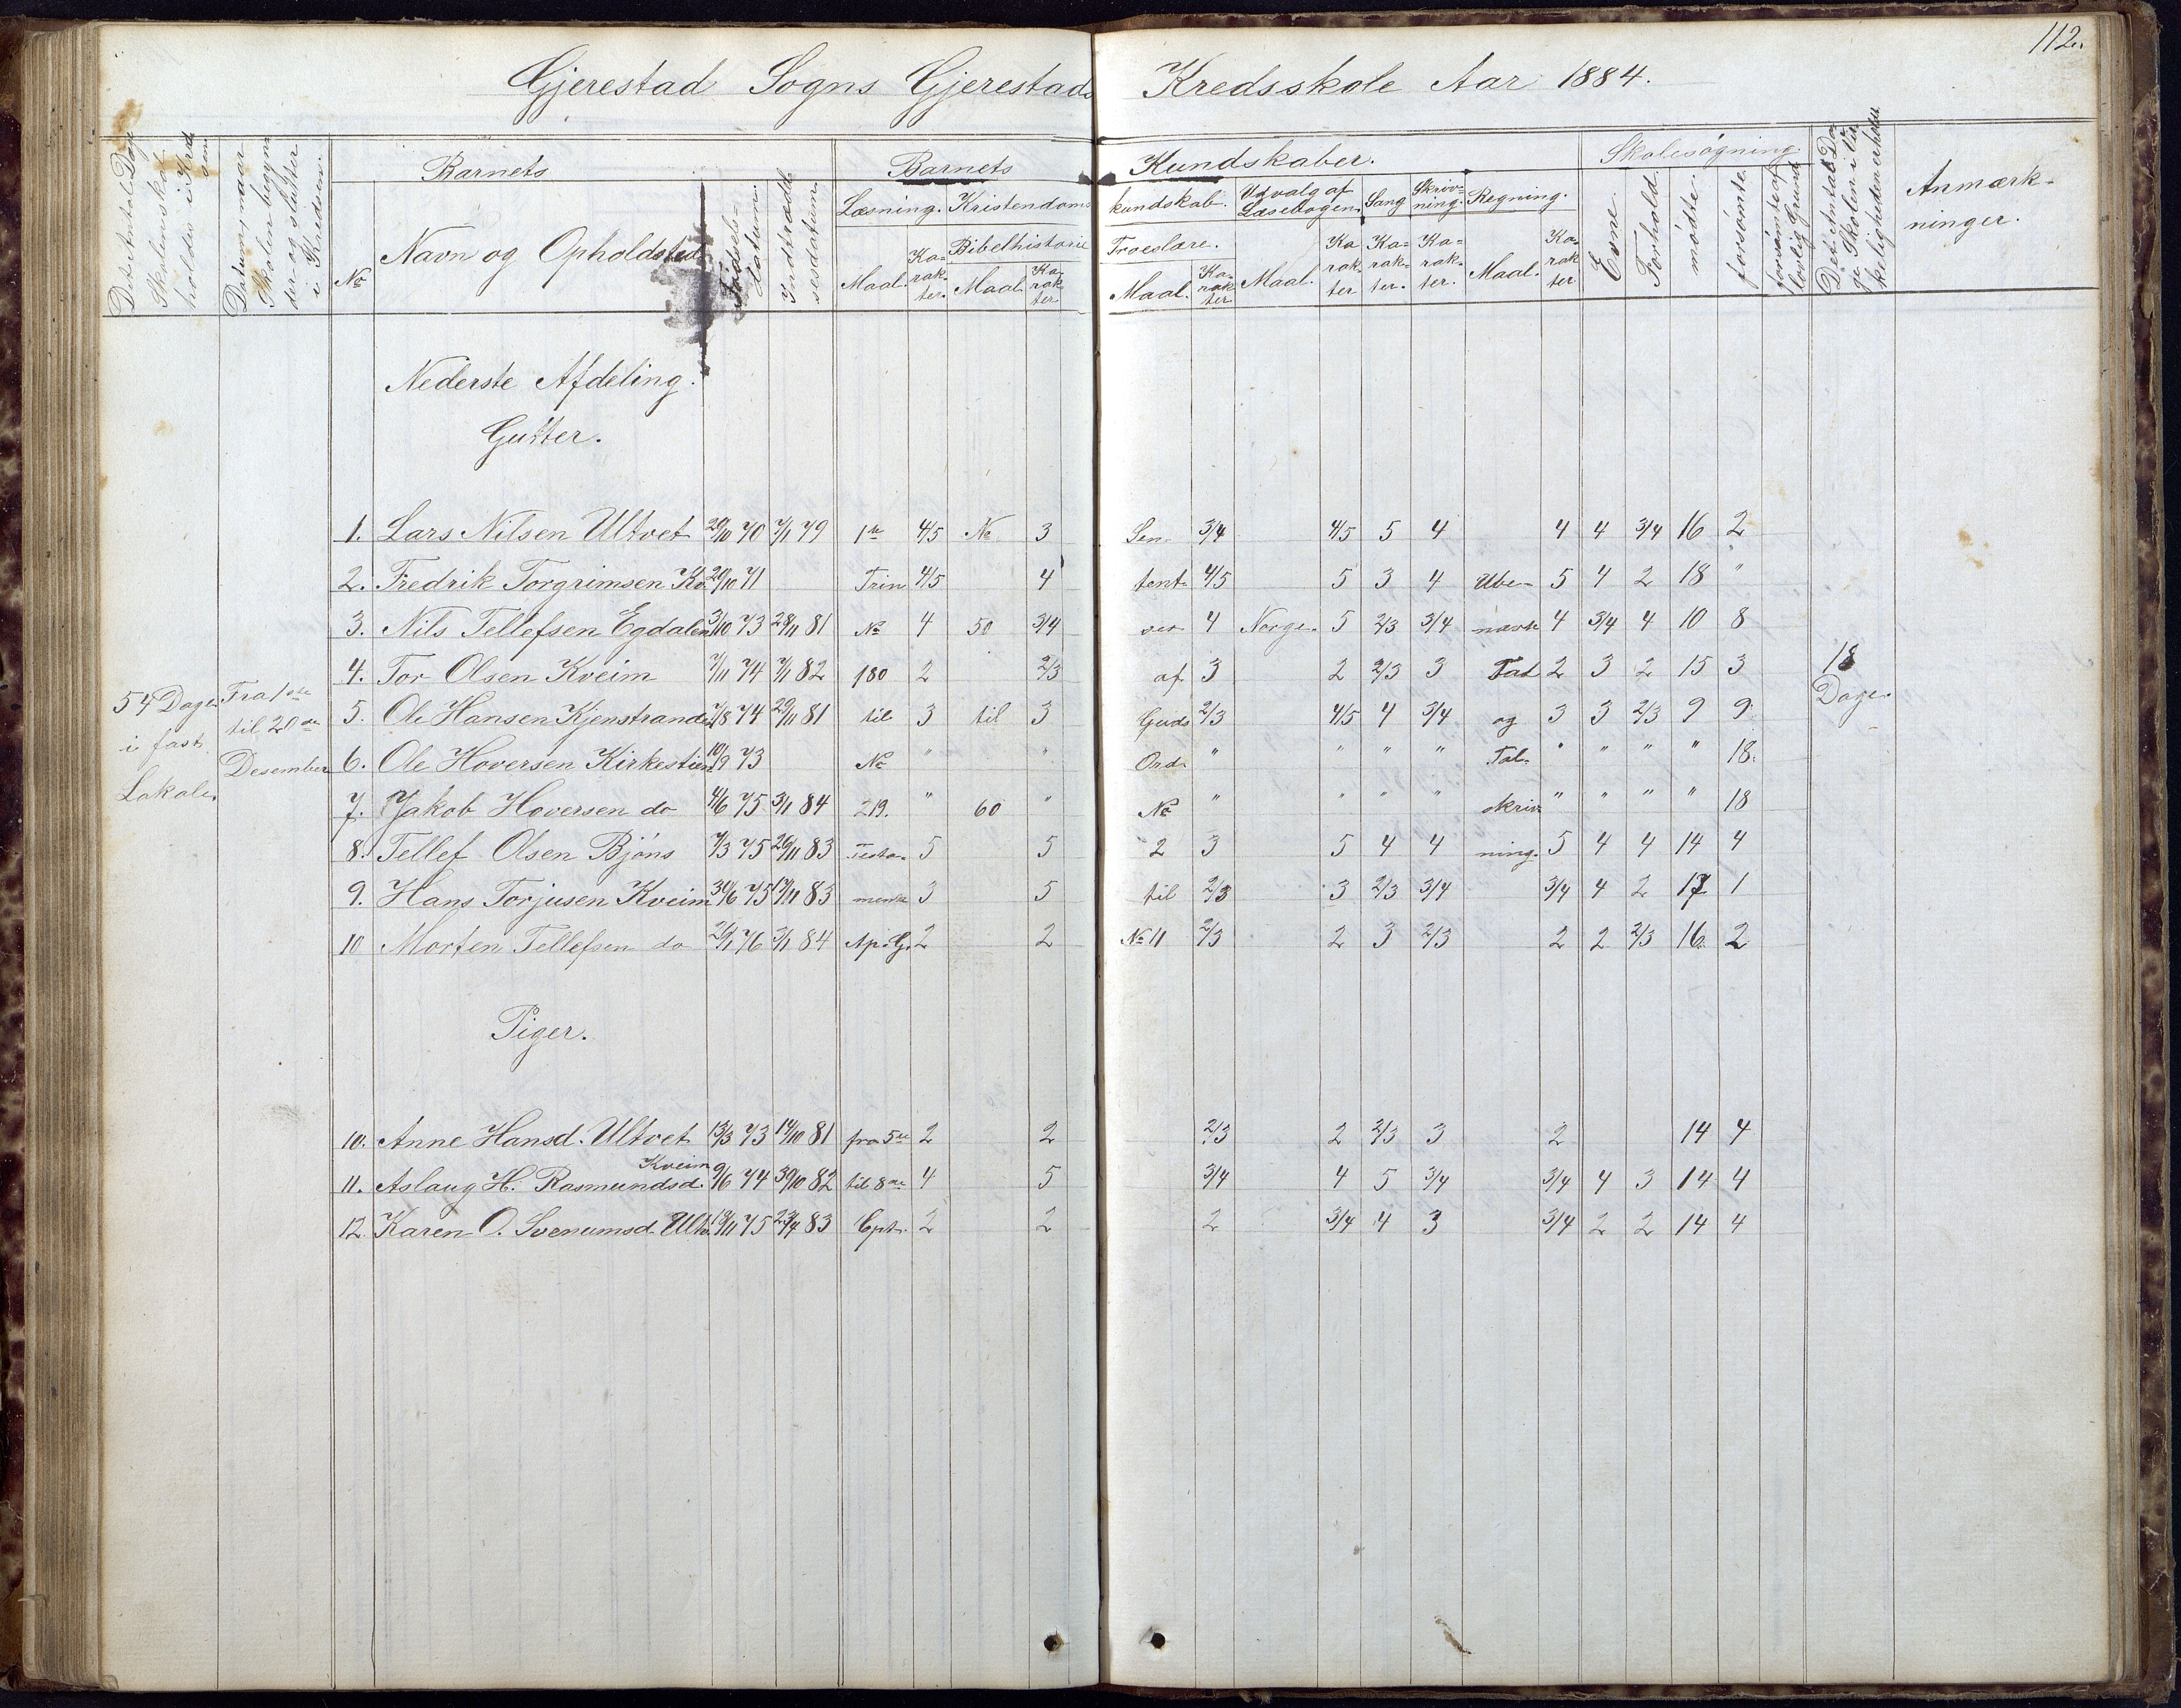 112.
Gjerestad Sogns Gjerestads Kredsskole Aar 1884.
Det Antal Dage Skolen skal holdes i Kredsen
Datum, naar Skolen begynder og slutter i Kredsen.
Barnets
Barnets Kundskaber.
Skolesøgning.
Det Antal Dage Skolen i Virkeligheden er holdt
Anmærkninger.
No
Navn og Opholdsted
Fødselsdatum.
Indtrædelsesdatum.
Læsning. Kristendomskundskab. Udvalg af Læsebogen. Sang Skrivning. Regning.
Bibelhistorie Troeslære.
Maal. Karakter. Maal. Karakter Maal. Karakter Maal. Karakter Karakter. Karakter. Maal. Karakter
Evne. Forhold. mødte. forsømte. forsømte af lovlig Grund
Nederste Afdeling.
Gutter.
1. Lars Nilsen Ultvet 29/10 70 7/1 79 1ste 4/5 No 3 Sen- 3/4 4/5 5 4 4 4 3/4 16 2
2. Fredrik Torgrimsen Kv. 20/10 71 Trin 4/5 4 tent- 4/5 5 3 4 Ube- 5 4 2 18 "
3. Nils Tellefsen Egdalen 3/10 73 28/11 81 No 4 50 3/4 ser 4 Norge. 5 2/3 3/4 nævte 4 3/4 4 10 8
4. Tor Olsen Kveim 7/11 74 7/1 82 180 2 2/3 af 3 2 2/3 3 Tal 2 3 2 15 3
54 Dage i fast Lokale.
Fra 1ste til 20de Desember
18 Dage.
5. Ole Hansen Kjenstrande 7/8 74 29/11 81 til 3 til 3 Guds 2/3 4/5 4 3/4 og 3 3 2/3 9 9
6. Ole Hoversen Kirkestien 10/9 73 No " " Ord. " " " " Tal- " " " " 18.
7. Jakob Hoversen do 4/6 75 3/1 84 219. " 60 " No " " " " skriv- " " " " 18
8. Tellef Olsen Bjöns 7/3 75 20/11 83 Testa- 5 5 2 3 5 4 4 ning. 5 4 4 14 4
9. Hans Torjusen Kveim 30/6 75 17/11 83 mente 3 5 til 2/3 3 2/3 3/4 3/4 4 2 17 1
10 Morten Tellefsen do 76 3/1 84 Ap. G. 2 2 No 11 2/3 2 3 2/3 2 2 2/3 16. 2
Piger.
10. Anne Hansd. Ultvet 13/3 73 14/10 81 fra 5te 2 2 2/3 2 2/3 3 2 14 4
11. Aslaug H. Rasmundsd. Kveim 9/6 74 30/10 82 til 8de 4 5 3/4 4 5 3/4 3/4 4 3 14 4
12. Karen O. Svenumsd. Ultv. 19/11 75 23/4 83 Cpt. 2 2 2 3/4 4 3 3/4 2 2 14 4